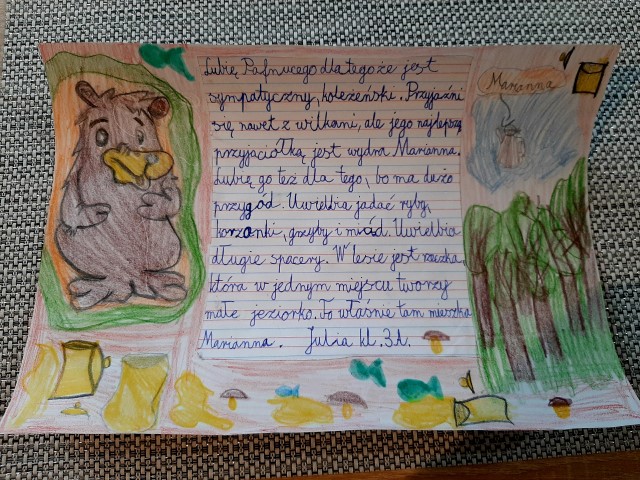 Lubię Pafnucego dlatego że jest
sympatyczny, koleżeński. Przyjaźni
się nawet z wilkami, ale jego najlepszą
przyjaciółką jest wydra Marianna.
Lubię go też dla tego, bo ma dużo
przygód. Uwielbia jadać ryby,
korzonki, grzyby i miód. Uwielbia
długie spacery. W lesie jest rzeczka,
która w jednym miejscu tworzy
małe jeziorko. To właśnie tam mieszka
Marianna. Julia kl. 3A.
Marianna